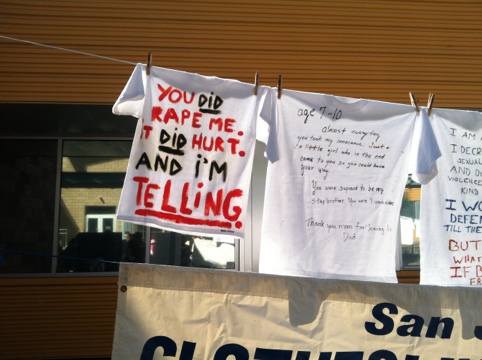 YOU DID
RAPE ME.
IT DID HURT.
AND I'M
TELLING.
age 7-10
almost everyday
you took my innocence. Just
a little girl who in the end
came to you so you could have
your way.
You were supposed to be my
step brother. You were
Thank you mom for
Dad
I AM
I DECR
SEXUAL
AND D
VIOLENCE
KIND
I WO
DEFEN
TILL THE
BUT
WHAT
IF
San J
CLOTHESLIN